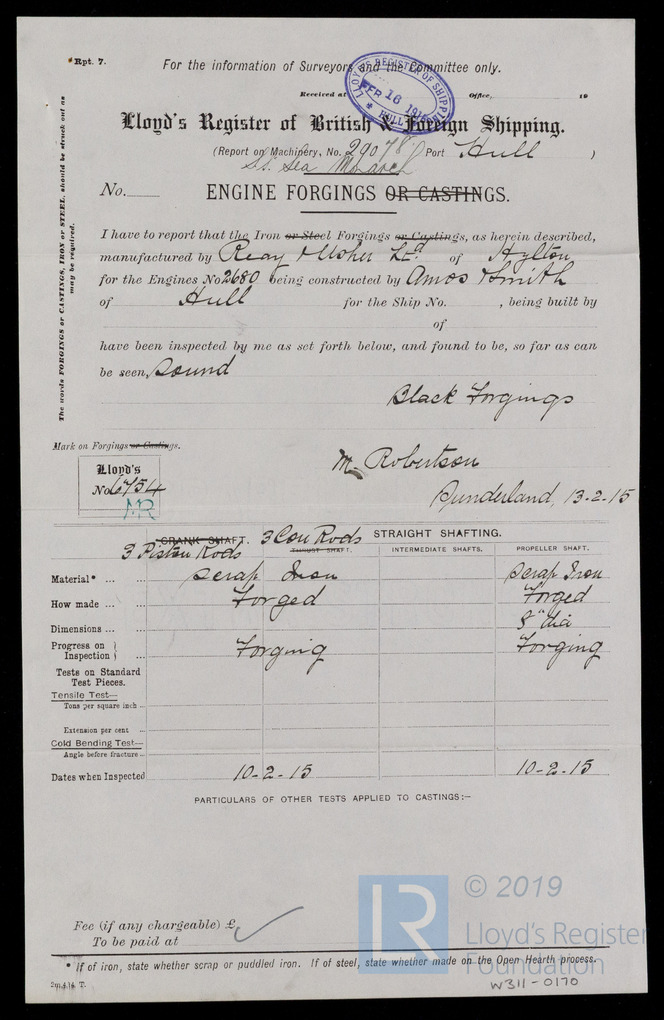 *Rpt. 7.
For the information of Surveyors and the Committee only.
Received at Office, 19
LLOYD'S REGISTER OF SHIPPING
FEB 16 1915
* HULL
Lloyd's Register of British & Foreign Shipping.
(Report on Machinery, No. 29078 Port Hull )
S.S. Sea Monarch
No.
ENGINE FORGINGS OR CASTINGS.
The words FORGINGS or CASTINGS, IRON or STEEL, should be struck out as may be required.
I have to report that the Iron or Steel Forgings or Castings, as herein described,
manufactured by Reay & Usher Ltd. of Hylton
for the Engines No 2680 being constructed by Amos & Smith
of Hull for the Ship No. , being built by
of
have been inspected by me as set forth below, and found to be, so far as can
be seen, sound
Black Forgings
Mark on Forgings or Castings.
Lloyd's
No 6754
MR
M. Robertson
Sunderland, 13-2-15
CRANK SHAFT. 3 Con Rods STRAIGHT SHAFTING.
3 Piston Rods THRUST SHAFT. INTERMEDIATE SHAFTS. PROPELLER SHAFT.
Material* ... ... Scrap Iron Scrap Iron
How made ... ... Forged Forged
Dimensions ... ... 8" dia
Progress on Inspection } ... Forging Forging
Tests on Standard
Test Pieces.
Tensile Test—
Tons per square inch ...
Extension per cent ...
Cold Bending Test—
Angle before fracture—
Dates when Inspected 10-2-15 10-2-15
PARTICULARS OF OTHER TESTS APPLIED TO CASTINGS:—
Fee (if any chargeable) £
To be paid at
* If of iron, state whether scrap or puddled iron. If of steel, state whether made on the Open Hearth process.
LR
© 2019
Lloyd's Register
Foundation
W311-0170